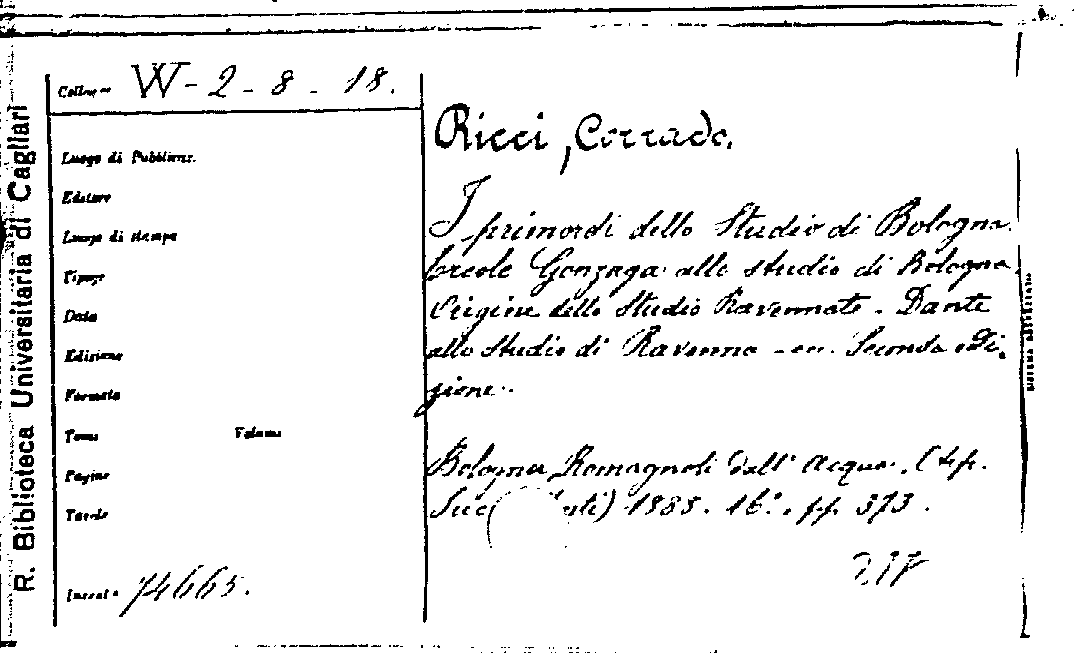 R. Biblioteca Universitaria di Cagliari
Colloc.ne W-2-8-18.
Luogo di Pubblicaz.
Editore
Luogo di stampa
Tipogr.
Data
Edizione
Formato
Tomo Volume
Pagine
Tavole
Invent.º 74665.
Ricci, Corrado.
I primordi dello Studio di Bologna.
Ercole Gonzaga allo studio di Bologna.
Origine dello Studio Ravennate. Dante
allo studio di Ravenna - ecc. Seconda edi-
zione.
Bologna, Romagnoli Dall' Acqua, (tip.
Succ 1888. 16º. pp. 373.